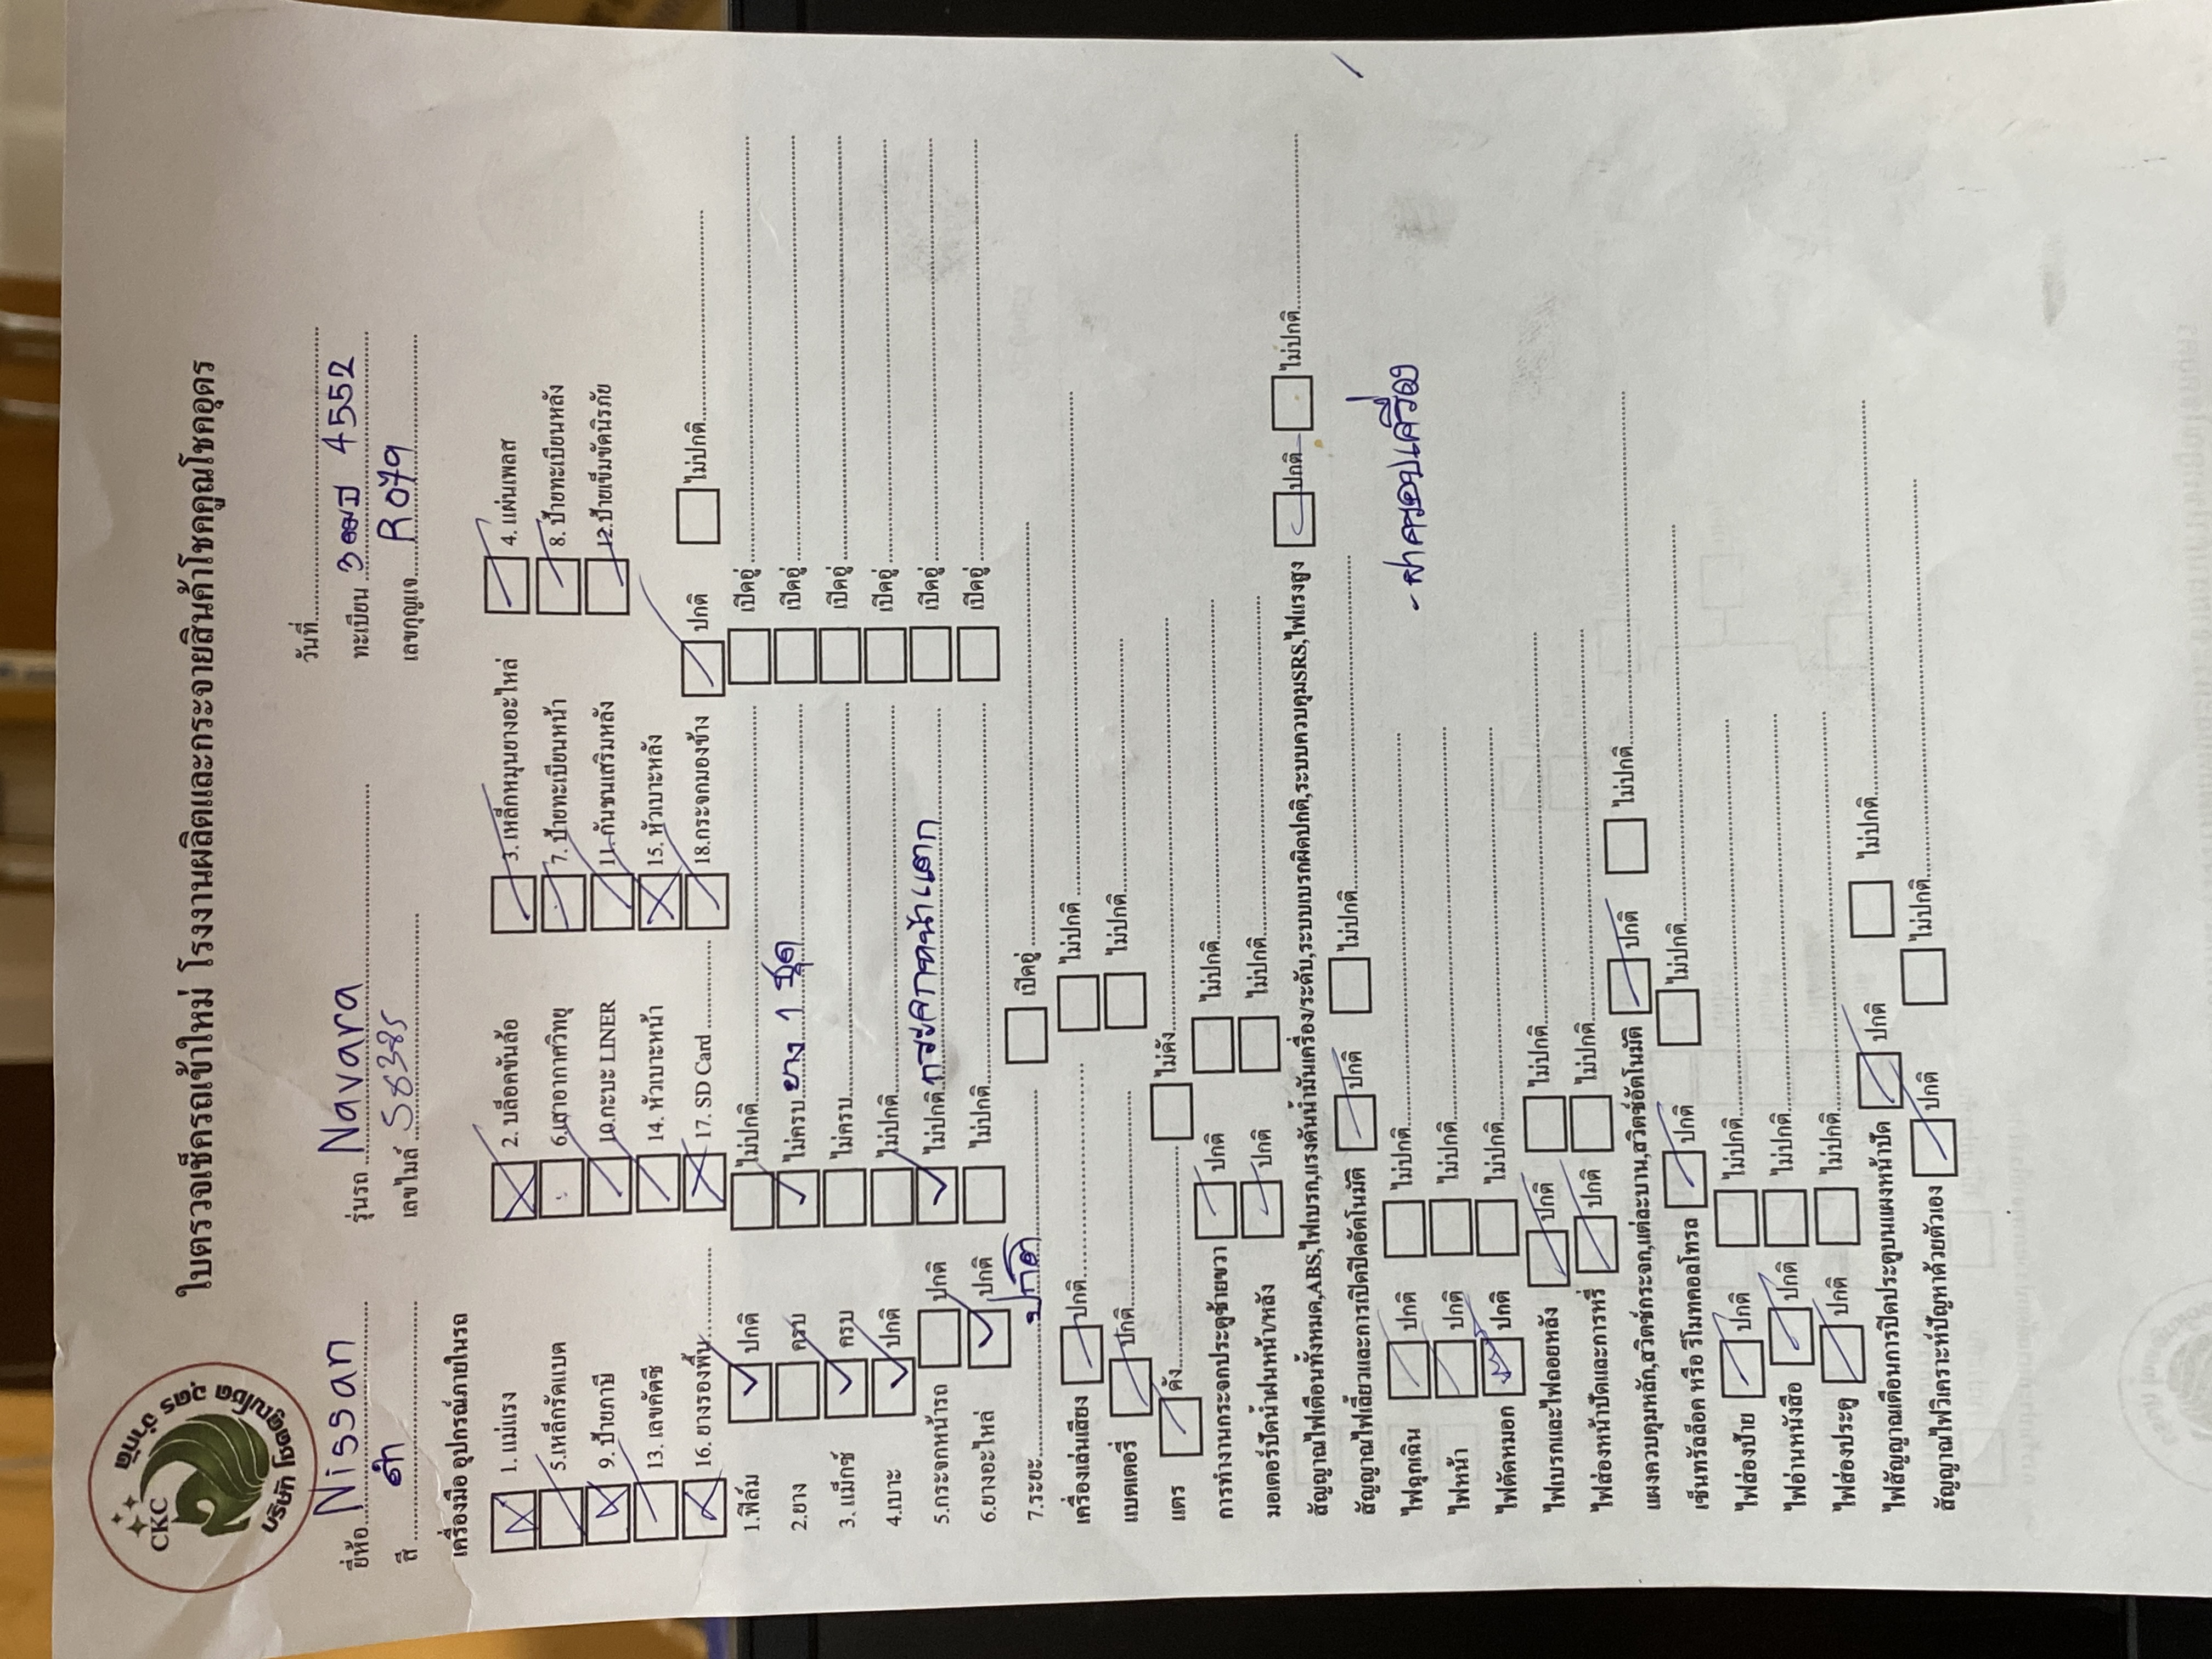 CKC
บริษัท โชคคูณโชค อุดร จำกัด
ใบตรวจเช็ครถเข้าใหม่ โรงงานผลิตและกระจายสินค้าโชคคูณโชคอุดร
วันที่
ยี่ห้อ Nissan รุ่นรถ Navara ทะเบียน 4552
สี ดำ เลขไมล์ เลขกุญแจ R079
เครื่องมือ อุปกรณ์ภายในรถ
1. แม่แรง 2. บล็อคขันล้อ 3.เหล็กหมุนยางอะไหล่ 4. แผ่นเพลส
5.เหล็กรัดแบต 6.เสาอากาศวิทยุ 7. ป้ายทะเบียนหน้า 8. ป้ายทะเบียนหลัง
9. ป้ายภาษี 10.กะบะ LINER 11.กันชนเสริมหลัง 12.ป้ายเข็มขัดนิรภัย
13. เลขคัตซี 14. หัวเบาะหน้า 15. หัวเบาะหลัง
16. ยางรองพื้น 17. SD Card 18.กระจกมองข้าง ปกติ ไม่ปกติ
1.ฟิล์ม ปกติ ไม่ปกติ เปิดอู่
2.ยาง ครบ ไม่ครบ ยาง 1 ชุด เปิดอู่
3. แม็กซ์ ครบ ไม่ครบ เปิดอู่
4.เบาะ ปกติ ไม่ปกติ เปิดอู่
5.กระจกหน้ารถ ปกติ ไม่ปกติ กระจกหน้าแตก เปิดอู่
6.ยางอะไหล่ ปกติ ไม่ปกติ เปิดอู่
7.ระยะ ปกติ เปิดอู่
เครื่องเล่นเสียง ปกติ ไม่ปกติ
แบตเตอรี่ ปกติ ไม่ปกติ
แตร ดัง ไม่ดัง
การทำงานกระจกประตูซ้ายขวา ปกติ ไม่ปกติ
มอเตอร์ปัดน้ำฝนหน้า/หลัง ปกติ ไม่ปกติ
สัญญาณไฟเตือนทั้งหมด,ABS,ไฟเบรก,แรงดันน้ำมันเครื่อง/ระดับ,ระบบเบรกผิดปกติ,ระบบควบคุมSRS,ไฟแรงสูง ปกติ ไม่ปกติ
สัญญาณไฟเลี้ยวและการเปิดปิดอัตโนมัติ ปกติ ไม่ปกติ
ไฟฉุกเฉิน ปกติ ไม่ปกติ
ไฟหน้า ปกติ ไม่ปกติ
ไฟตัดหมอก ปกติ ไม่ปกติ
ไฟเบรกและไฟถอยหลัง ปกติ ไม่ปกติ
ไฟส่องหน้าปัดและการหรี่ ปกติ ไม่ปกติ
แผงควบคุมหลัก,สวิตช์กระจก,แต่ละบาน,สวิตช์อัตโนมัติ ปกติ ไม่ปกติ
เซ็นทรัลล็อค หรือ รีโมทคอลโทรล ปกติ ไม่ปกติ
ไฟส่องป้าย ปกติ ไม่ปกติ
ไฟอ่านหนังสือ ปกติ ไม่ปกติ
ไฟส่องประตู ปกติ ไม่ปกติ
ไฟสัญญาณเตือนการปิดประตูบนแผงหน้าปัด ปกติ ไม่ปกติ
สัญญาณไฟวิเคราะห์ปัญหาด้วยตัวเอง ปกติ ไม่ปกติ